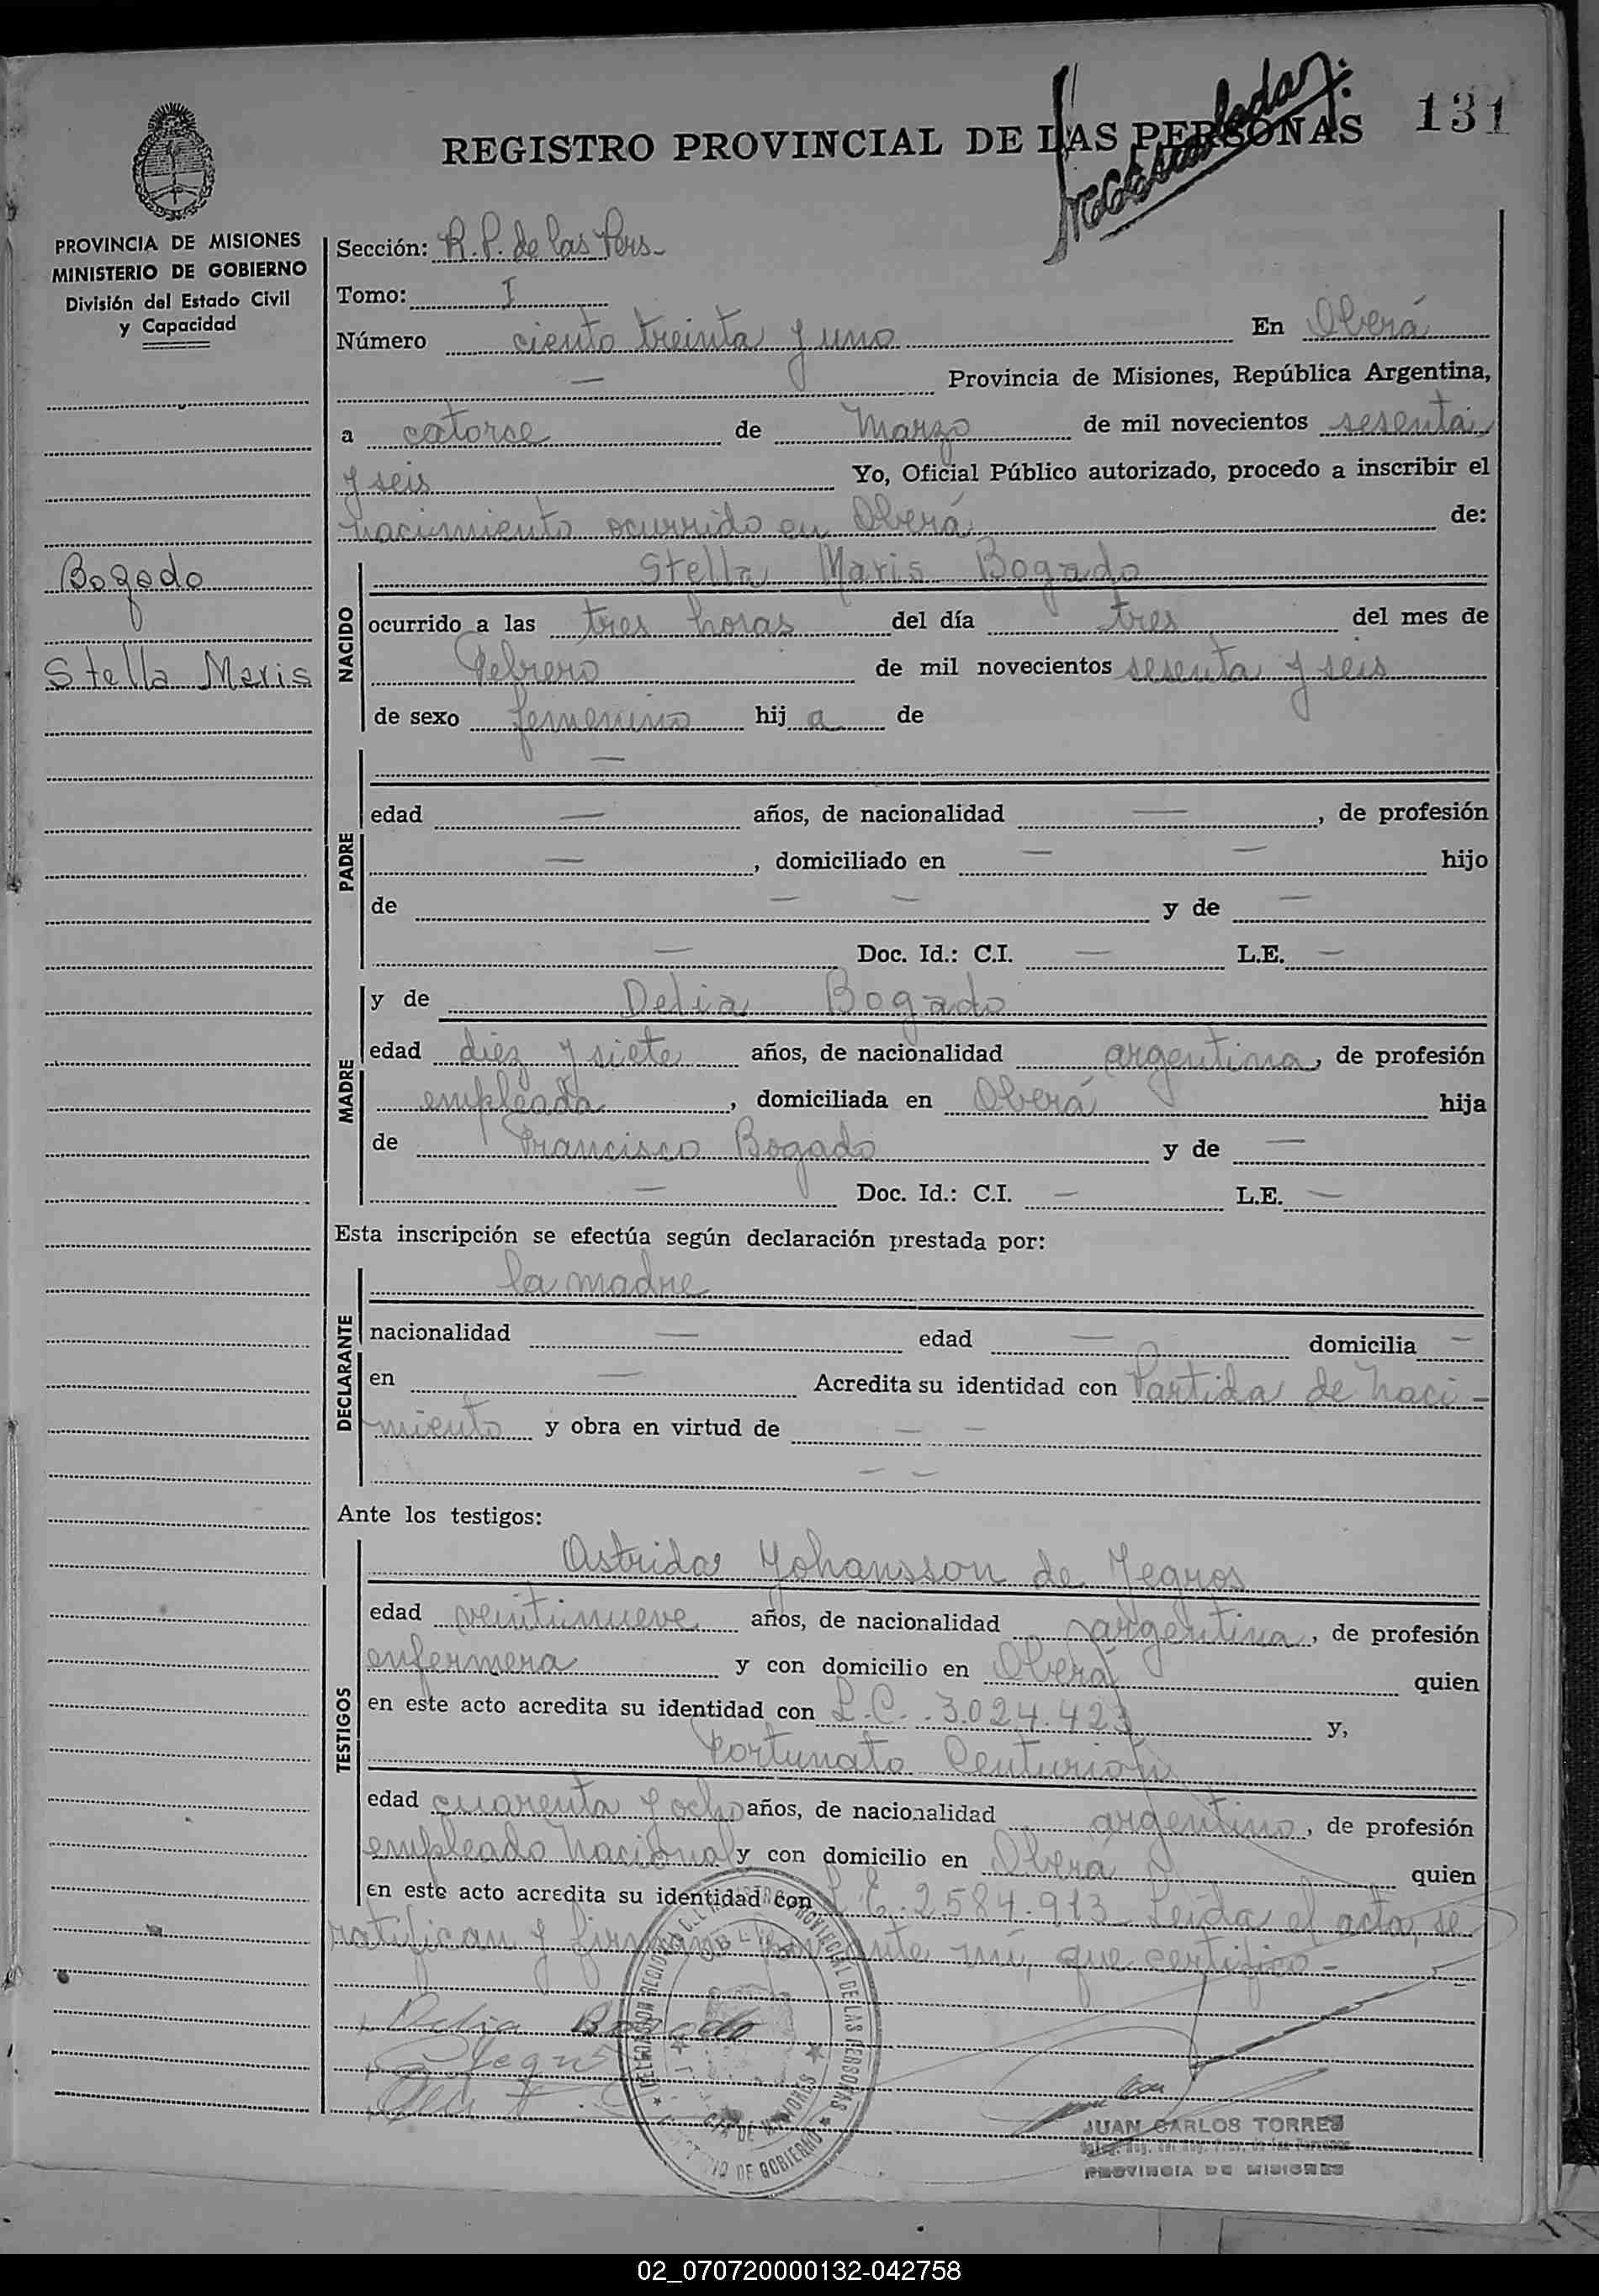 131
REGISTRO PROVINCIAL DE LAS PERSONAS
PROVINCIA DE MISIONES
MINISTERIO DE GOBIERNO
División del Estado Civil
y Capacidad
Bogado
Stella Maris
Sección: R.P. de las Pers-
Tomo: I
Número ciento treinta y uno En Oberá
— Provincia de Misiones, República Argentina,
a catorce de Marzo de mil novecientos sesenta
y seis Yo, Oficial Público autorizado, procedo a inscribir el
nacimiento ocurrido en Oberá de:
NACIDO
Stella Maris Bogado
ocurrido a las tres horas del día tres del mes de
Febrero de mil novecientos sesenta y seis
de sexo femenino hij a de
—
PADRE
edad — años, de nacionalidad —, de profesión
—, domiciliado en — — hijo
de — — y de —
— Doc. Id.: C.I. — L.E. —
MADRE
y de Delia Bogado
edad diez y siete años, de nacionalidad argentina, de profesión
empleada, domiciliada en Oberá hija
de Francisco Bogado y de —
— Doc. Id.: C.I. — L.E. —
Esta inscripción se efectúa según declaración prestada por:
DECLARANTE
la madre
nacionalidad — edad — domicilia —
en — Acredita su identidad con Partida de naci-
miento y obra en virtud de — —
— —
Ante los testigos:
TESTIGOS
Astrida Yohansson de Yegros
edad veintinueve años, de nacionalidad argentina, de profesión
enfermera y con domicilio en Oberá quien
en este acto acredita su identidad con L.C. 3.024.423 y,
Fortunato Centurión
edad cuarenta y ocho años, de nacionalidad argentino, de profesión
empleado nacional y con domicilio en Oberá quien
en este acto acredita su identidad con L.E. 2.584.913 Leída el acta, se
ratifican y firman por ante mí, que certifico-
Delia Bogado
JUAN CARLOS TORRES
PROVINCIA DE MISIONES
02_070720000132-042758